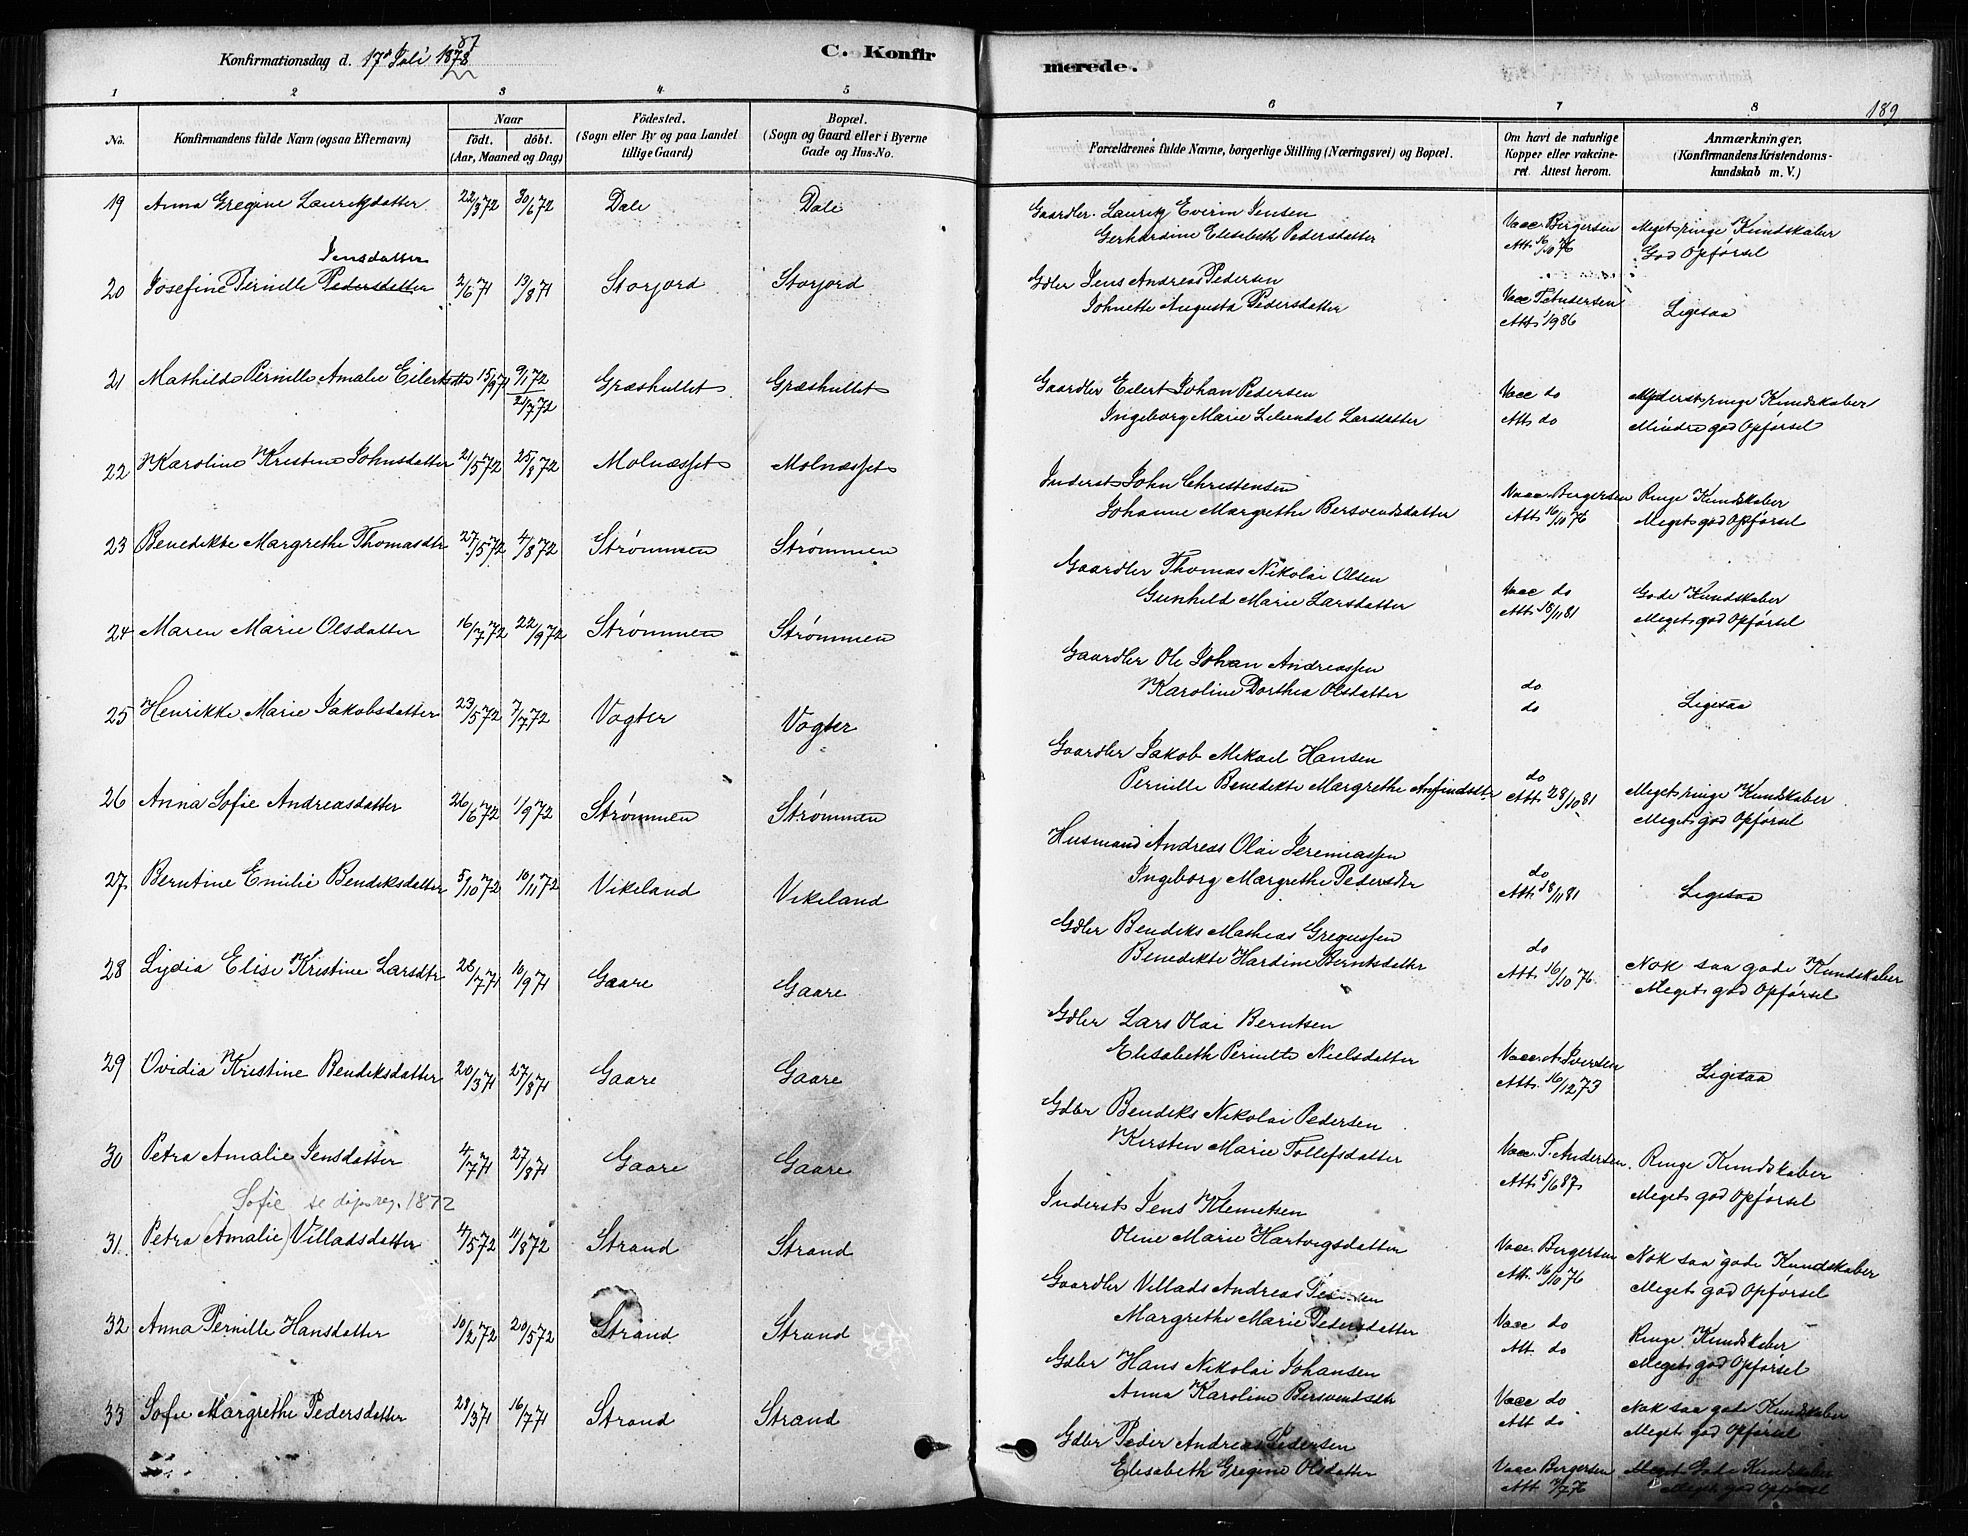 Konfirmationsdag d. 17de Juli 1878 87
C. Konfirmerede.
189
1 2 3 4 5 6 7 8
No.
Konfirmandens fulde Navn (ogsaa Efternavn)
Naar
födt. döbt.
(Aar, Maaned og Dag)
Födested.
(Sogn eller By og paa Landet
tillige Gaard)
Bopæl.
(Sogn og Gaard eller i Byerne
Gade og Hus-No.
Forældrenes fulde Navne, borgerlige Stilling (Næringsvei) og Bopæl.
Om havt de naturlige
Kopper eller vakcine-
ret. Attest herom.
Anmærkninger.
(Konfirmandens Kristendoms-
kundskab m. V.)
19 Anna Gregine Lauritzdatter 22/3 72 30/6 72 Dale Dale
Gaardbr. Lauritz Everin Jensen Vacc. Bergersen Meget ringe Kundskaber
Gerhardine Elisabeth Pedersdatter Att. 16/10 76 God Opførsel
Jensdatter
20 Josefine Pernille Pedersdatter 2/6 71 13/8 71 Storjord Storjord
Gdbr Jens Andreas Pedersen Vacc T. Andersen Ligesaa
Johnette Augusta Pedersdatter Att. 1/9 86
21 Mathilde Pernille Amalie Eilertsdtr 15/9 71 9/1 72 Græshullet Græshullet
21/7 72
Gaardbr Eilert Johan Pedersen Vacc do Yderst ringe Kundskaber
Ingeborg Marie Liliendal Larsdatter Att do Mindre god Opførsel
22 Karoline Kristine Johnsdatter 21/5 72 25/8 72 Molnæsset Molnæsset
Inderst John Christensen Vacc. Bergersen Ringe Kundskaber
Johanne Margrethe Bersvendsdatter Att. 16/10 76 Meget god Opførsel
23 Benedikte Margrethe Thomasdtr 27/5 72 4/8 72 Strømmen Strømmen
Gaardbr Thomas Nikolai Olsen Vacc do Gode Kundskaber
Gunhild Marie Larsdatter Att. 18/11 81 Meget god Opførsel
24 Maren Marie Olsdatter 16/7 72 22/9 72 Strømmen Strømmen
Gaardbr Ole Johan Andreassen do Ligesaa
Karoline Dorthea Olsdatter do
25 Henrikke Marie Jakobsdatter 23/5 72 7/7 72 Vogter Vogter
Gaardbr Jakob Mikael Hansen do Meget ringe Kundskaber
Pernille Benedikte Margrethe Anfindatter Att. 28/10 81 Meget god Opførsel
26 Anna Sofie Andreasdatter 26/6 72 1/9 72 Strømmen Strømmen
Husmand Andreas Olai Jeremiassen do Ligesaa
Ingeborg Margrethe Pedersdtr Att. 18/11 81
27 Berntine Emilie Bendiksdatter 5/10 72 10/11 72 Vikeland Vikeland
Gdbr Bendiks Mathias Gregussen do Nok saa gode Kundskaber
Benedikte Hardine Berntsdatter Att. 16/10 76 Meget god Opførsel
28 Lydia Elise Kristine Larsdtr 28/7 71 10/9 71 Gaare Gaare
Gdbr Lars Olai Berntsen Vacc. A. Iversen Ligesaa
Elisabeth Pernille Nielsdatter Att. 16/12 73
29 Ovidia Kristine Bendiksdatter 20/3 71 27/8 71 Gaare Gaare
Gdbr Bendiks Nikolai Pedersen Vacc. T. Andersen Ringe Kundskaber
Kirsten Marie Tollefsdatter Att. 5/6 87 Meget god Opførsel
30 Petra Amalie Jensdatter 4/7 71 27/8 71 Gaare Gaare
Inderst Jens Klemetsen Vacc. Bergersen Nok saa gode Kundskaber
Oline Marie Hartvigsdatter Att. 16/10 76 Meget god Opførsel
Sofie se dåpsreg. 1872
31 Petra (Amalie) Villadsdatter 4/5 72 11/8 72 Strand Strand
Gaardbr Villads Andreas Pedersen Vacc do Ringe Kundskaber
Margrethe Marie Pedersdatter Att. do Meget god Opførsel
32 Anna Pernille Hansdatter 10/2 72 20/5 72 Strand Strand
Gdbr Hans Nikolai Johansen Vacc do Nok saa gode Kundskaber
Anna Karoline Bersvendsdtr Att do Meget god Opførsel
33 Sofie Margrethe Pedersdatter 28/3 71 16/7 71 Strand Strand
Gdbr Peder Andreas Pedersen Vacc Bergersen Meget Gode Kundskaber
Elisabeth Gregine Olsdatter Att. 76 Meget god Opførsel